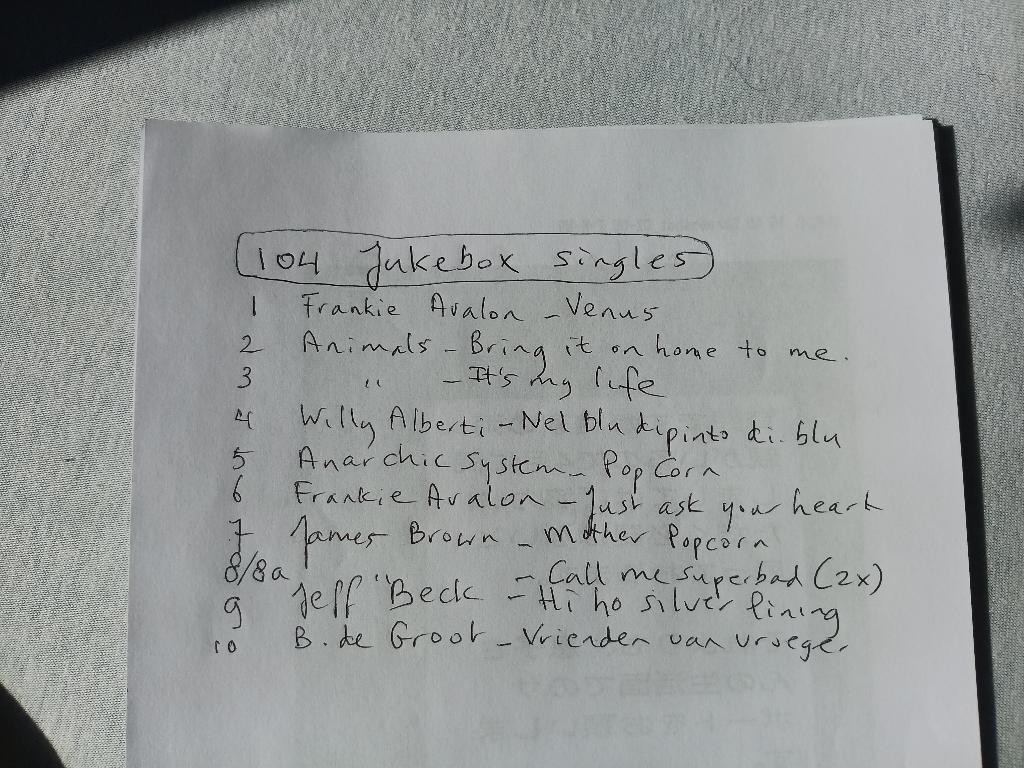 104 Jukebox singles
1 Frankie Avalon - Venus
2 Animals - Bring it on home to me.
3 " - It's my life
4 Willy Alberti - Nel blu dipinto di blu
5 Anarchic System - Pop Corn
6 Frankie Avalon - Just ask your heart
7 James Brown - Mother Popcorn
8/8a " - Call me superbad (2x)
9 Jeff Beck - Hi ho silver lining
10 B. de Groot - Vrienden van vroeger